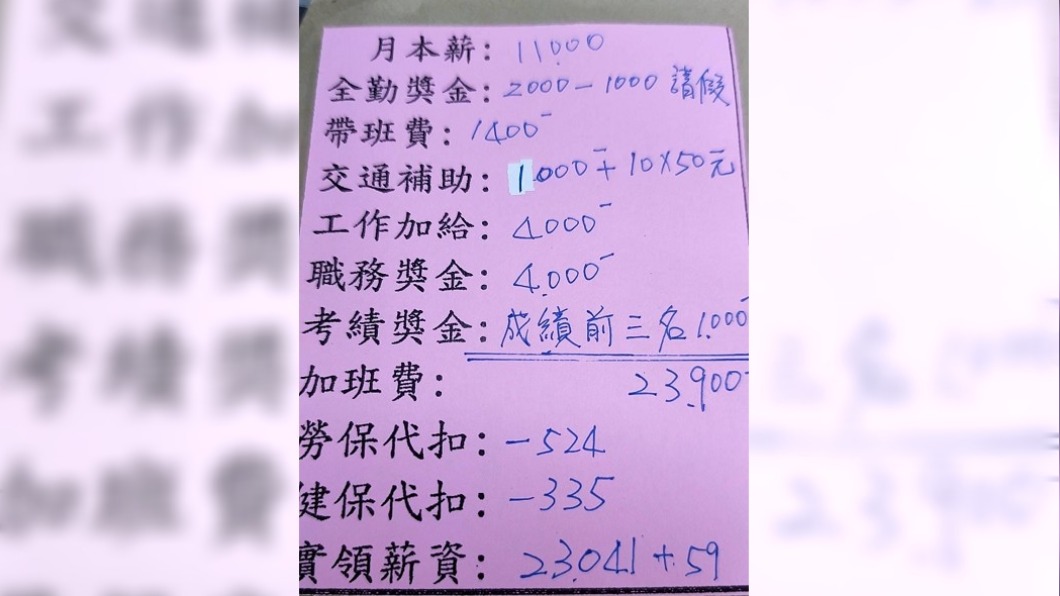 月本薪: 11.000
全勤獎金: 2000-1000 請假
帶班費: 1400-
交通補助: 1.000-+10×50元
工作加給: 4000-
職務獎金: 4.000-
考績獎金: 成績前三名1.000-
加班費: 23.900-
勞保代扣: -524
健保代扣: -335
實領薪資: 23.041+59